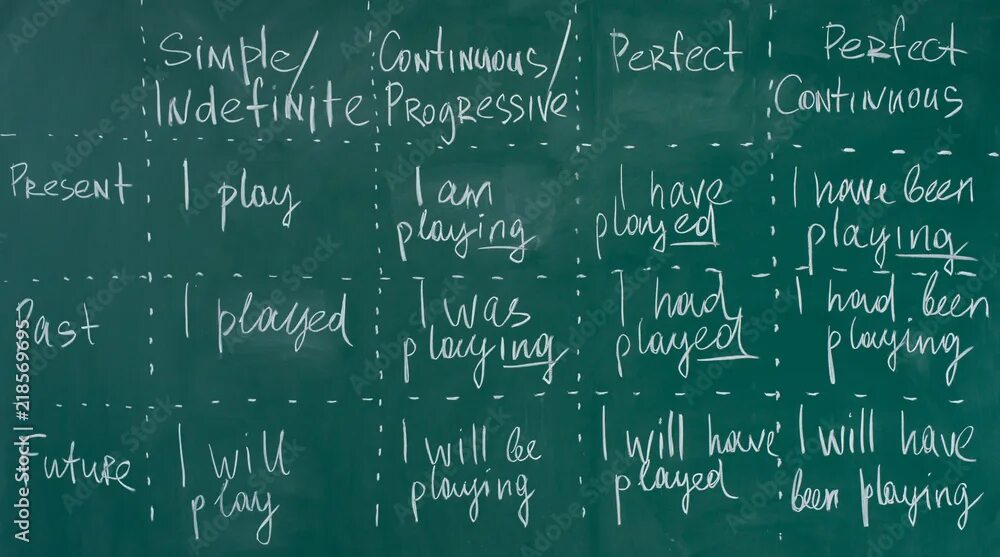 Simple/
Indefinite
Continuous/
Progressive
Perfect
Perfect
Continuous
Present
I play
I am
playing
I have
played
I have been
playing
Past
I played
I was
playing
I had
played
I had been
playing
Future
I will
play
I will be
playing
I will have
played
I will have
been playing
Adobe Stock | #218569695